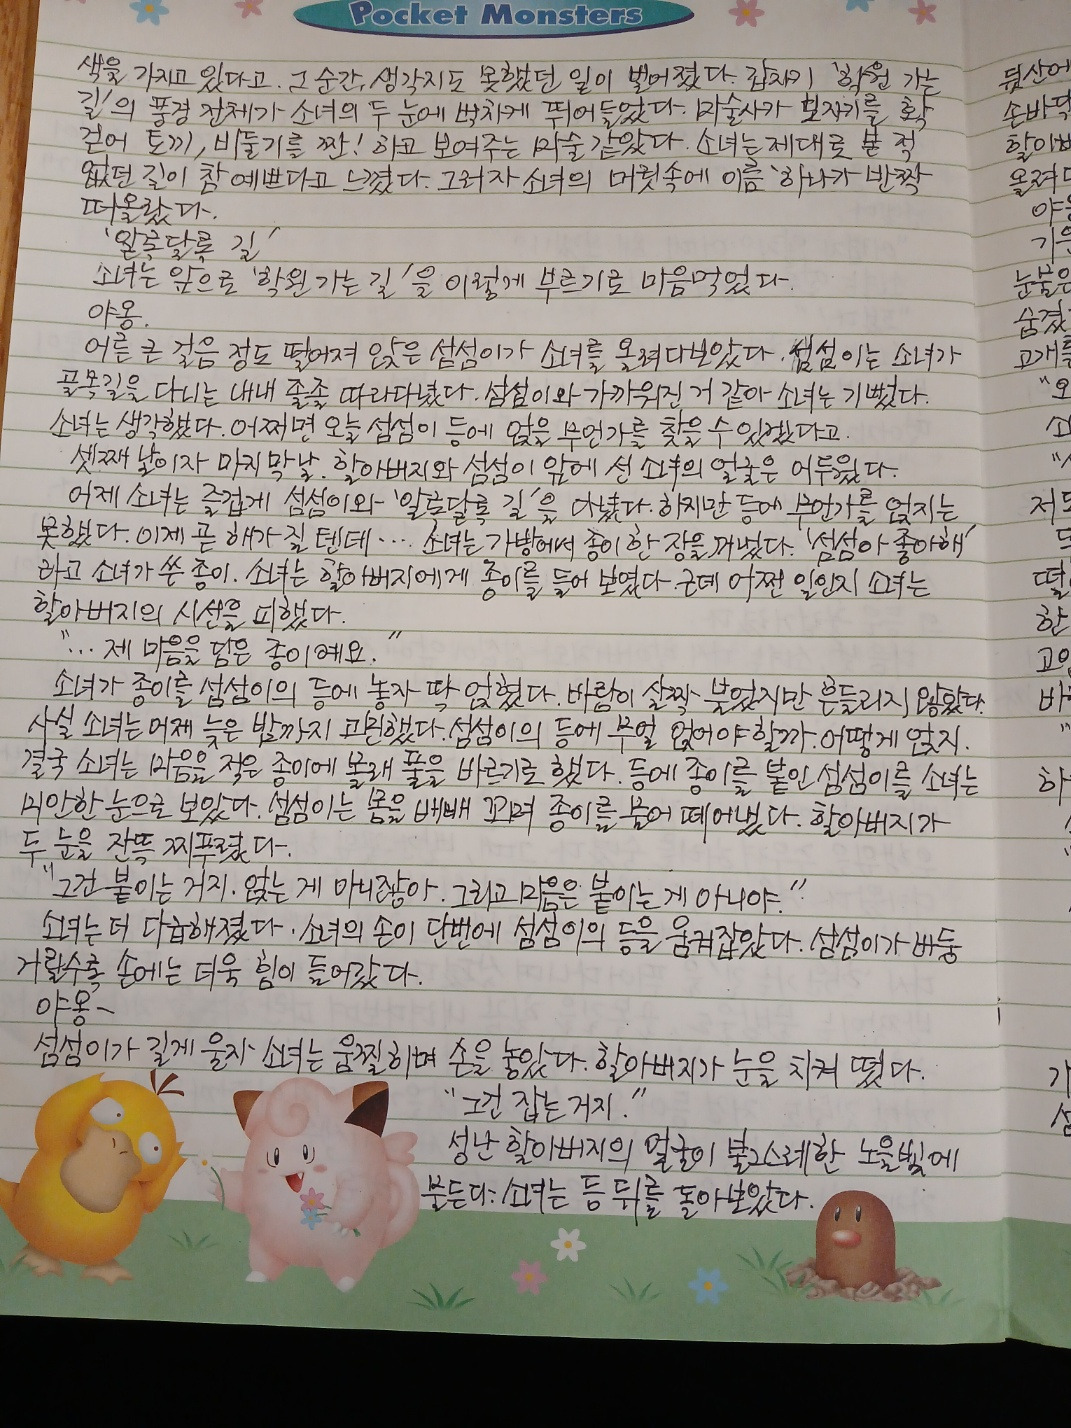 Pocket Monsters
색을 가지고 있다고. 그 순간, 생각지도 못했던 일이 벌어졌다. 갑자기 '학원 가는
길'의 풍경 전체가 소녀의 두 눈에 벅차게 뛰어들었다. 마술사가 보자기를 확
걷어 토끼, 비둘기를 짠! 하고 보여주는 마술 같았다. 소녀는 제대로 본 적
없던 길이 참 예쁘다고 느꼈다. 그러자 소녀의 머릿속에 이름 하나가 반짝
떠올랐다.
'알록달록 길'
소녀는 앞으로 '학원 가는 길'을 이렇게 부르기로 마음먹었다.
야옹.
어른 큰 걸음 정도 떨어져 앉은 섬섬이가 소녀를 올려다보았다. 섬섬이는 소녀가
골목길을 다니는 내내 졸졸 따라다녔다. 섬섬이와 가까워진 거 같아 소녀는 기뻤다.
소녀는 생각했다. 어쩌면 오늘 섬섬이 등에 얹을 무언가를 찾을 수 있겠다고.
셋째 날이자 마지막 날. 할아버지와 섬섬이 앞에 선 소녀의 얼굴은 어두웠다.
어제 소녀는 즐겁게 섬섬이와 '알록달록 길'을 다녔다. 하지만 등에 무언가를 얹지는
못했다. 이제 곧 해가 질 텐데···. 소녀는 가방에서 종이 한 장을 꺼냈다. '섬섬아 좋아해'
하고 소녀가 쓴 종이. 소녀는 할아버지에게 종이를 들어 보였다. 근데 어쩐 일인지 소녀는
할아버지의 시선을 피했다.
"··· 제 마음을 담은 종이예요."
소녀가 종이를 섬섬이의 등에 놓자 딱 얹혔다. 바람이 살짝 불었지만 흔들리지 않았다.
사실 소녀는 어제 늦은 밤까지 고민했다. 섬섬이의 등에 무얼 얹어야 할까. 어떻게 얹지.
결국 소녀는 마음을 적은 종이에 몰래 풀을 바르기로 했다. 등에 종이를 붙인 섬섬이를 소녀는
미안한 눈으로 보았다. 섬섬이는 몸을 배배 꼬며 종이를 물어 떼어냈다. 할아버지가
두 눈을 잔뜩 찌푸렸다.
"그건 붙이는 거지. 얹는 게 아니잖아. 그리고 마음은 붙이는 게 아니야."
소녀는 더 다급해졌다. 소녀의 손이 단번에 섬섬이의 등을 움켜잡았다. 섬섬이가 버둥
거릴수록 손에는 더욱 힘이 들어갔다.
야옹~
섬섬이가 길게 울자 소녀는 움찔하며 손을 놓았다. 할아버지가 눈을 치켜 떴다.
"그건 잡는 거지."
성난 할아버지의 얼굴이 불그스레한 노을빛에
물든다. 소녀는 등 뒤를 돌아보았다.
뒷산에
할아버
올려다
야옹
눈물은
숨겼
고개를